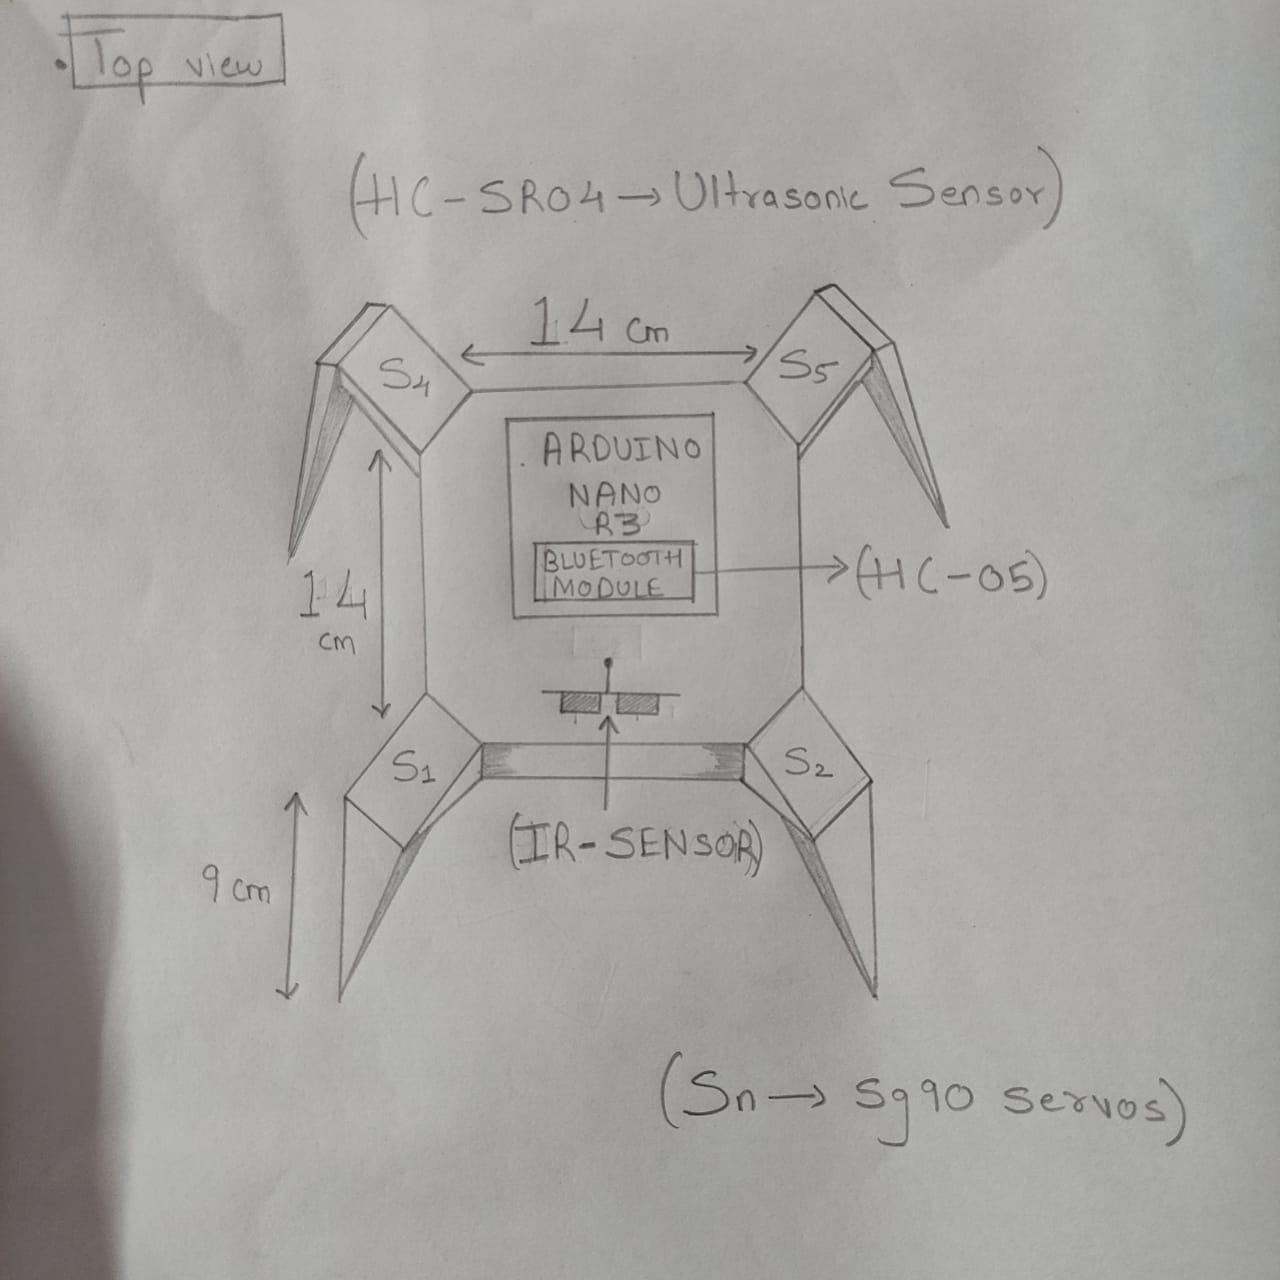 Top view
(HC-SR04→Ultrasonic Sensor)
14 cm
S4
S5
ARDUINO
NANO
R3
BLUETOOTH
MODULE
(HC-05)
14
cm
S1
S2
(IR-SENSOR)
9 cm
(Sn→ Sg90 servos)